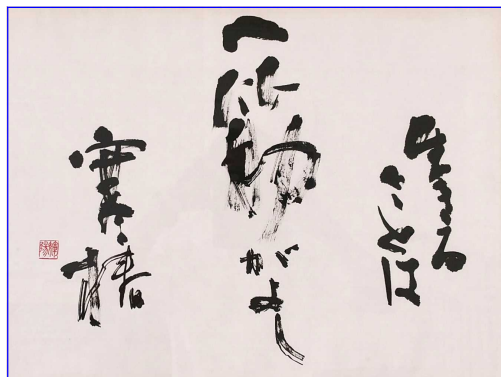 生きる
ことは
一筋がよし
寒椿